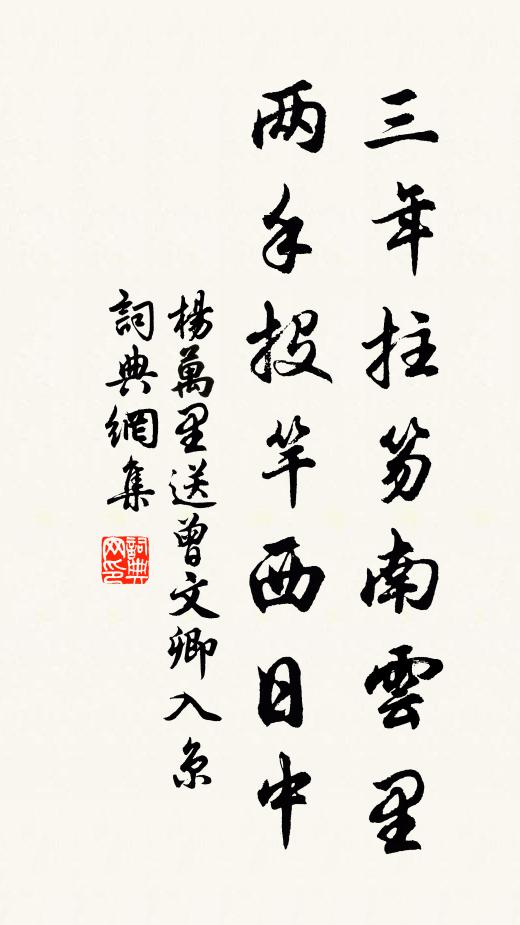 三年拄笏南雲里
两手投竿西日中
楊萬里送曾文卿入京
詞典網集
詞典网印